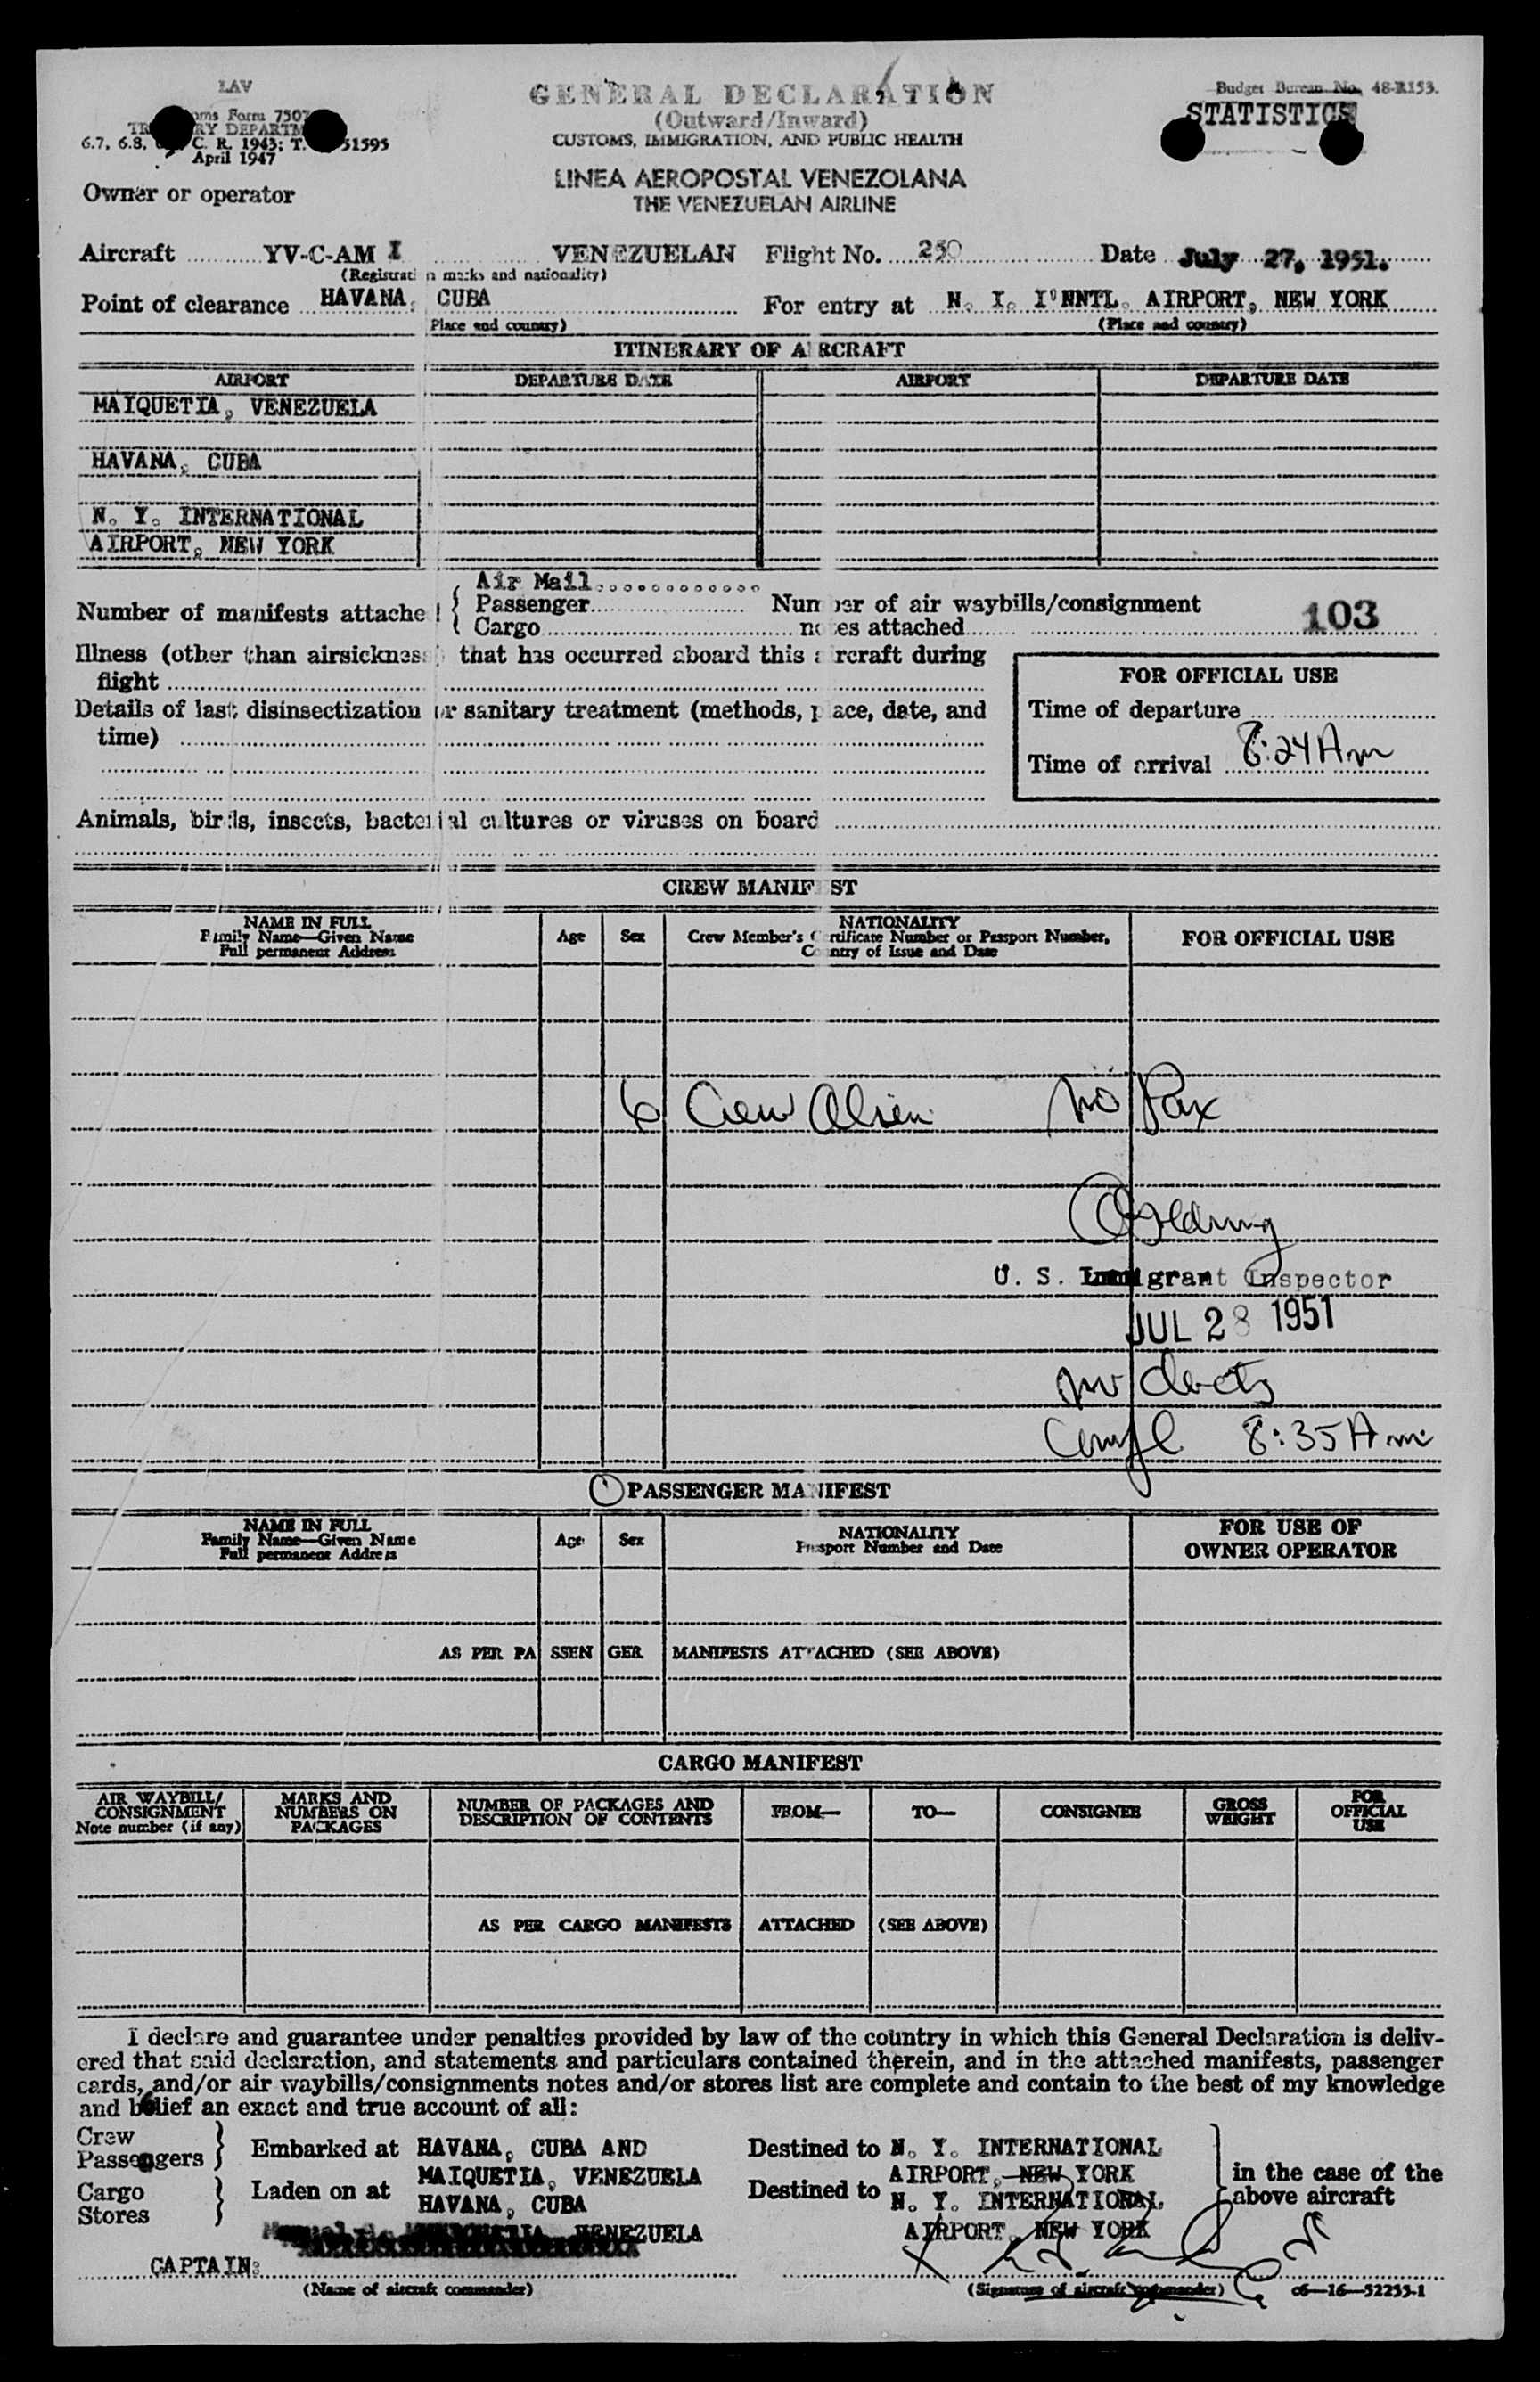 LAV
GENERAL DECLARATION
Budget Bureau No. 48-R153.
Customs Form 7507
TREASURY DEPARTMENT
(Outward/Inward)
STATISTICS
6.7, 6.8, C. R. 1943; T. 51595
CUSTOMS, IMMIGRATION, AND PUBLIC HEALTH
April 1947
LINEA AEROPOSTAL VENEZOLANA
Owner or operator
THE VENEZUELAN AIRLINE
Aircraft YV-C-AM I VENEZUELAN Flight No. 250 Date July 27, 1951.
(Registration marks and nationality)
Point of clearance HAVANA, CUBA For entry at N. I. I'NNTL. AIRPORT, NEW YORK
(Place and country) (Place and country)
ITINERARY OF AIRCRAFT
AIRPORT DEPARTURE DATE AIRPORT DEPARTURE DATE
MAIQUETIA, VENEZUELA
HAVANA, CUBA
N. Y. INTERNATIONAL
AIRPORT, NEW YORK
Air Mail
Number of manifests attached { Passenger Number of air waybills/consignment
Cargo notes attached 103
Illness (other than airsickness) that has occurred aboard this aircraft during
flight
FOR OFFICIAL USE
Details of last disinsectization or sanitary treatment (methods, place, date, and
time)
Time of departure
Time of arrival 8:24 Am
Animals, birds, insects, bacterial cultures or viruses on board
CREW MANIFEST
NAME IN FULL
Family Name—Given Name
Full permanent Address
Age Sex
NATIONALITY
Crew Member's Certificate Number or Passport Number,
Country of Issue and Date
FOR OFFICIAL USE
6 Crew Alien no Pax
U. S. Immigrant Inspector
JUL 28 1951
8:35 Am
PASSENGER MANIFEST
NAME IN FULL
Family Name—Given Name
Full permanent Address
Age Sex
NATIONALITY
Passport Number and Date
FOR USE OF
OWNER OPERATOR
AS PER PASSENGER MANIFESTS ATTACHED (SEE ABOVE)
CARGO MANIFEST
AIR WAYBILL/
CONSIGNMENT
Note number (if any)
MARKS AND
NUMBERS ON
PACKAGES
NUMBER OF PACKAGES AND
DESCRIPTION OF CONTENTS
FROM— TO— CONSIGNEE
GROSS
WEIGHT
FOR
OFFICIAL
USE
AS PER CARGO MANIFESTS ATTACHED (SEE ABOVE)
I declare and guarantee under penalties provided by law of the country in which this General Declaration is deliv-
ered that said declaration, and statements and particulars contained therein, and in the attached manifests, passenger
cards, and/or air waybills/consignments notes and/or stores list are complete and contain to the best of my knowledge
and belief an exact and true account of all:
Crew
Passengers } Embarked at HAVANA, CUBA AND Destined to N. Y. INTERNATIONAL
MAIQUETIA, VENEZUELA AIRPORT, NEW YORK
Cargo
Stores } Laden on at HAVANA, CUBA Destined to N. Y. INTERNATIONAL
VENEZUELA AIRPORT, NEW YORK
in the case of the
above aircraft
CAPTAIN:
(Name of aircraft commander) (Signature of aircraft commander) c6—16—52255-1